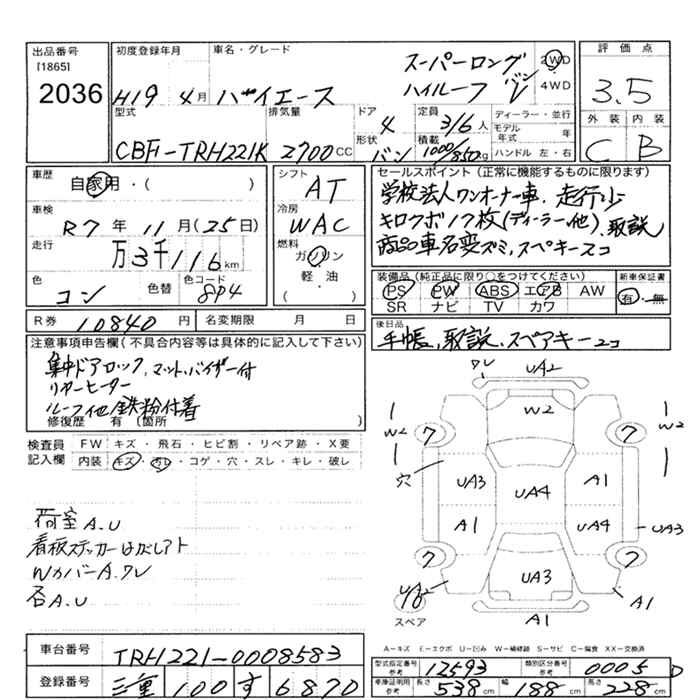 出品番号
[1865]
2036
初度登録年月
H19 4月
車名・グレード
ハイエース
スーパーロング
ハイルーフ バン
2WD
4WD
評価点
3.5
外装 内装
C B
型式
CBF-TRH221K
排気量
2700CC
ドア
4
形状
バン
定員
3/6人
積載
1000/850kg
ディーラー・並行
モデル年式 年
ハンドル 左・右
車歴
自家用・( )
車検
R7年11月(25日)
走行
万3千116km
色
コン
色替
色コード
8P4
シフト
AT
冷房
WAC
燃料
ガソリン
軽・油
( )
セールスポイント(正常に機能するものに限ります)
学校法人ワンオーナー車、走行少
キロクボ17枚(ディーラー他)、取説
商品車名変ズミ、スペキー2コ
装備品(純正品に限り○をつけてください)
PS PW ABS エアB AW
SR ナビ TV カワ
新車保証書
有・無
R券 10840円
名変期限 月 日
後日品
手帳、取説、スペアキー2コ
注意事項申告欄(不具合内容等は具体的に記入して下さい)
集中ドアロック、マット、バイザー付
リヤヒーター
ルーフ他鉄粉付着
修復歴 有 〔箇所 〕
検査員記入欄
FW キズ・飛石・ヒビ割・リペア跡・X要
内装 キズ・汚レ・コゲ・穴・スレ・キレ・破レ
荷室A.U
看板ステッカーはがしアト
WカバーA.ワレ
各A.U
ワレ UA2
W2
W2 7 7 W2
穴
UA3 UA4 A1
A1 UA4 UA3
7 7
UA3
A1
A1
スペア
A=キズ E=エクボ U=凹み W=補修跡 S=サビ C=腐食 XX=交換済
車台番号
TRH221-0008583
登録番号
三重 100 す 6870
型式指定番号
参考
12593
類別区分番号
参考
0005
車庫証明用
参考
長さ 538cm
幅 188cm
高さ 228cm